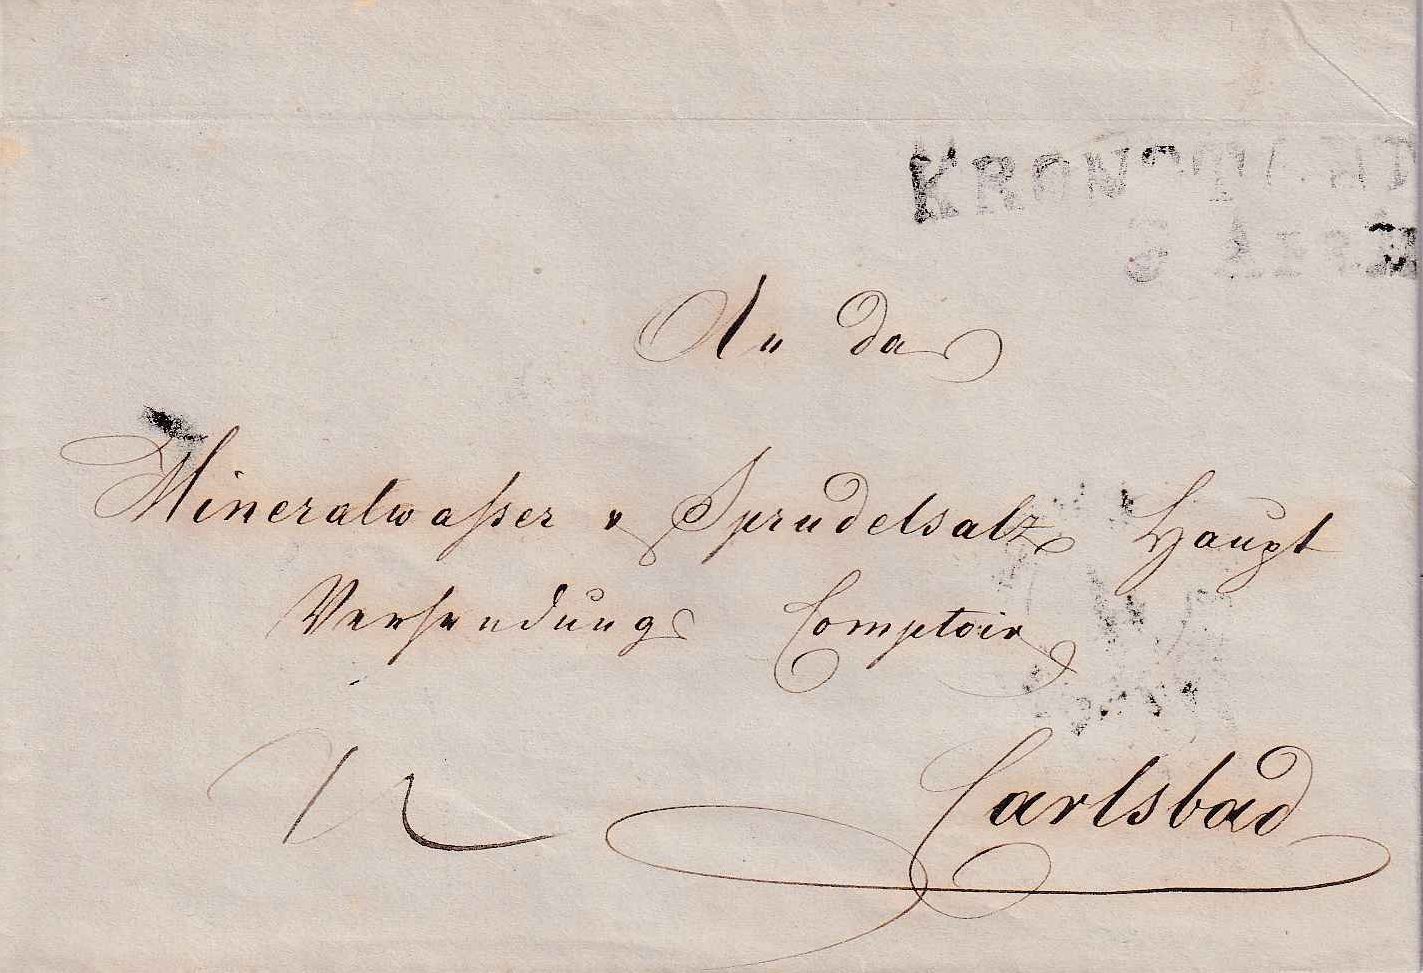 KRONSTADT
5 APRIL
An das
Mineralwaßer & Sprudelsalz Haupt
Versendungs Comptoir
Carlsbad